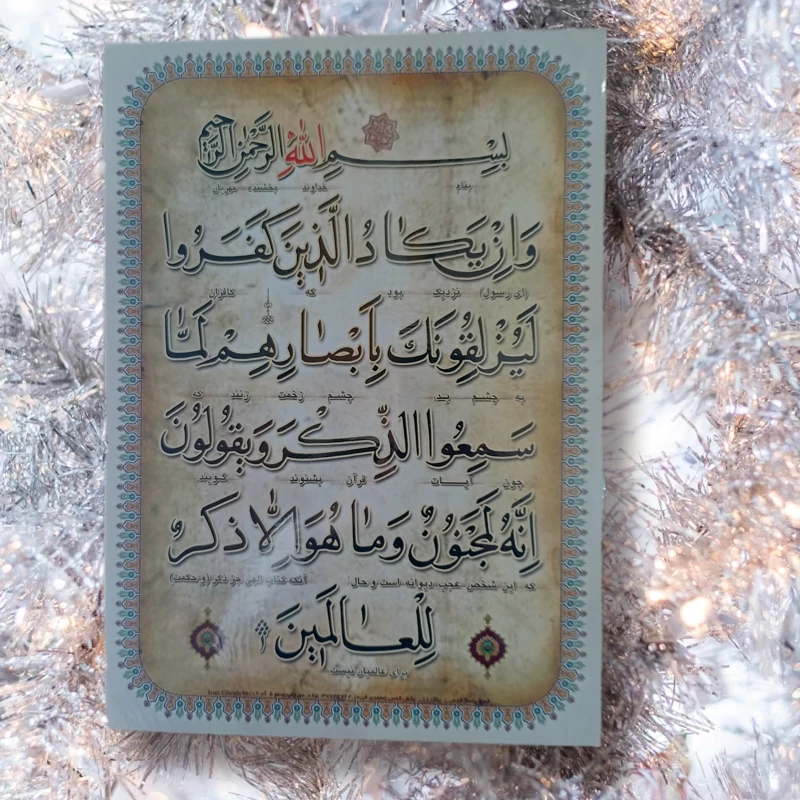 بِسْمِ اللهِ الرَّحْمٰنِ الرَّحیمِ
بنام خداوند بخشنده مهربان
وَاِنْ یَكٰادُ الَّذینَ كَفَرُوا
(ای رسول) نزدیک بود که کافران
لَیُزْلِقُونَكَ بِاَبْصٰارِهِمْ لَمّٰا
به چشم بد، چشم زخمت زنند که
سَمِعُوا الذِّكْرَ وَیَقُولُونَ
چون آیات قرآن بشنوند گویند
اِنَّهُ لَمَجْنُونٌ وَمٰا هُوَ اِلّٰا ذِكْرٌ
که این شخص عجب دیوانه است و حال آنکه کتاب الهی جز ذکر (و حکمت)
لِلْعٰالَمینَ
برای عالمیان نیست